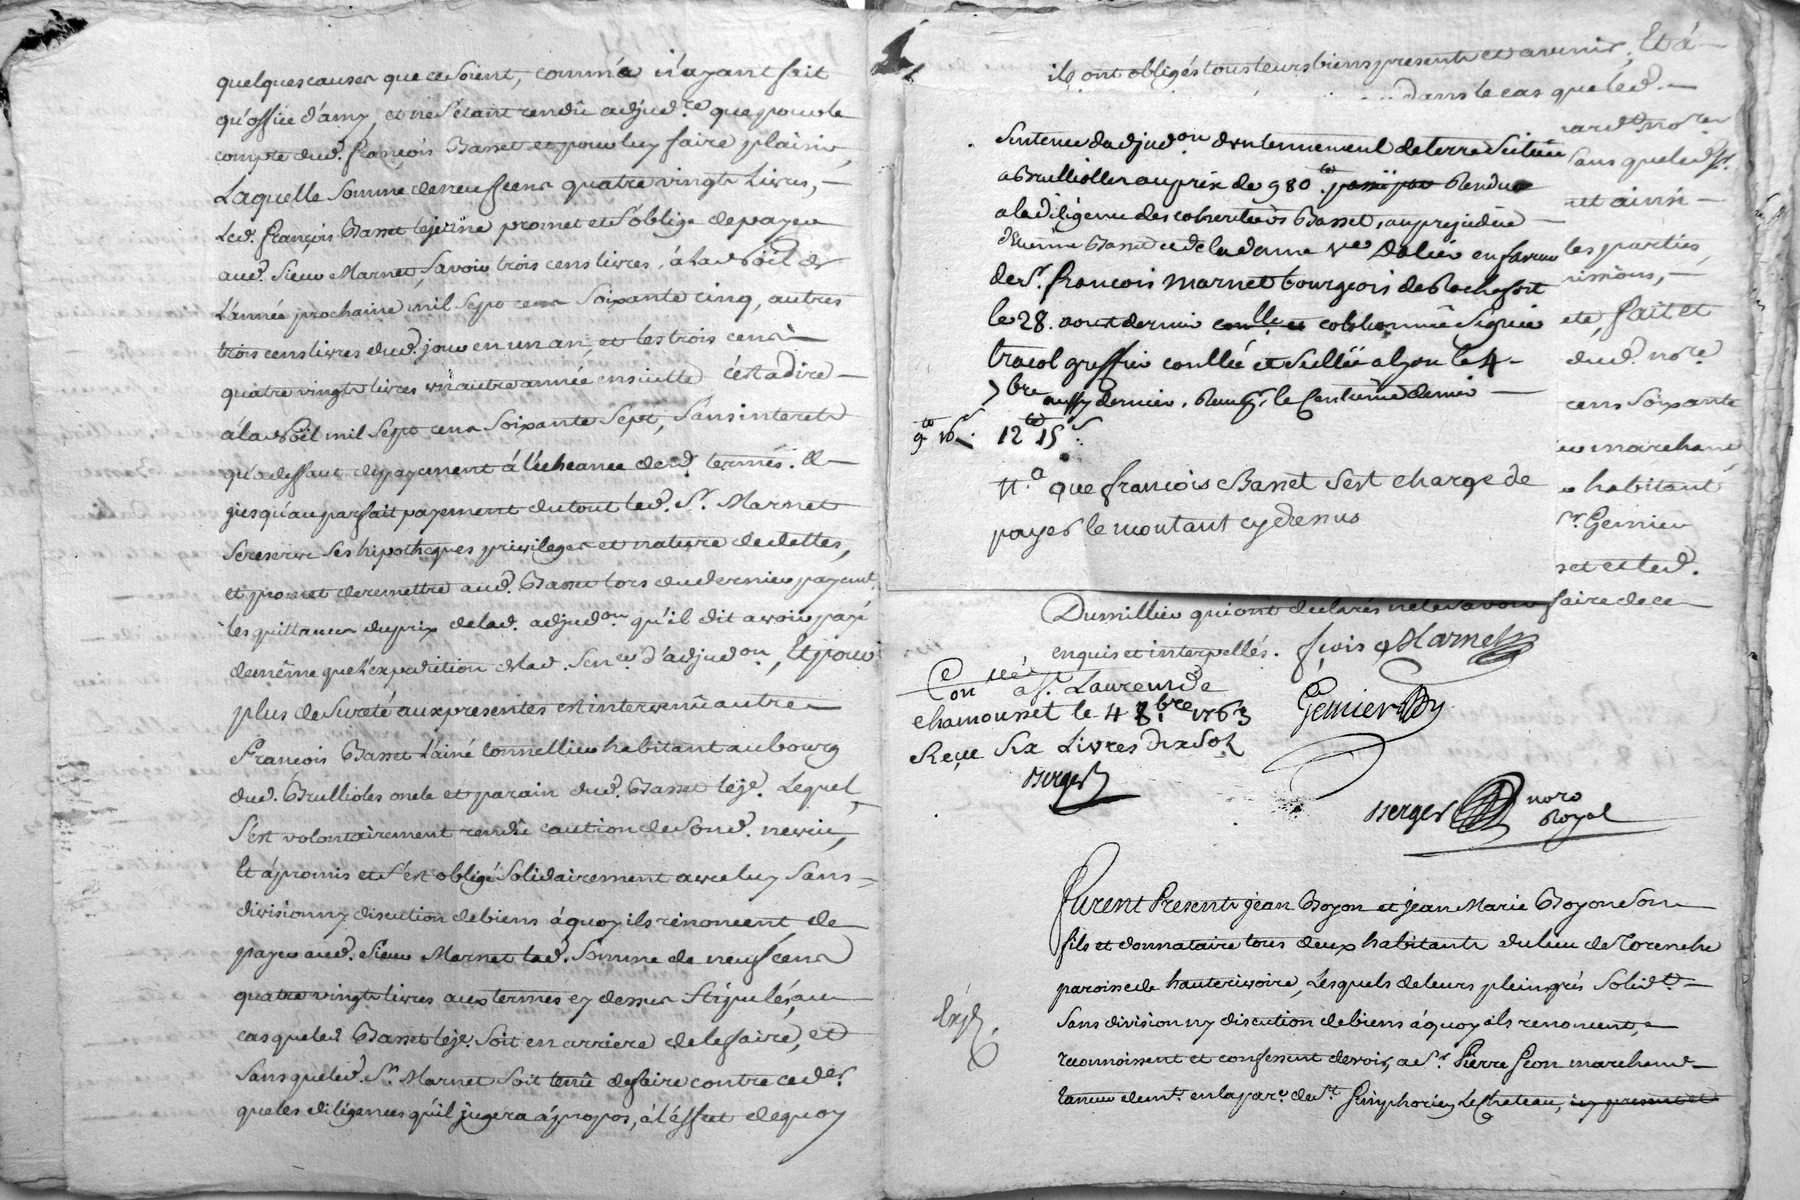 quelques causes que ce soient, comm'a n'ayant fait
qu'office d'amy, et ne s'etant rendû adjud.re que pour le
compte dud. françois Basset et pour luy faire plaisir,
Laquelle somme de neuf cens quatre vingts Livres,
Led. françois Basset lejeune promet et s'oblige de payer
aud. sieur Marnet, savoir trois cens livres, à la noël de
L'année prochaine mil sept cens soixante cinq, autres
trois cens livres dud. jour en un an, et les trois cens
quatre vingts livres un autre année ensuitte c'est a dire
á la noël mil sept cens soixante sept, sans interets
qu'a deffaut de payement á l'écheance desd. termes. et
jusqu'au parfait payement du tout led. Sr. Marnet
se reserve ses hipotheques privileges et nature de dettes,
et promet de remettre aud. Basset lors du dernier payemt.
les quittances du prix de lad. adjud.on qu'il dit avoir payé
de même que l'expedition de lad. sen.ce d'adjud.on, Et pour
plus de sureté aux presentes est intervenû autre
François Basset L'ainé tonnellier habitant au bourg
dud. Brullioles oncle et parain dud. Basset leje. Lequel
s'est volontairement rendû caution de son d. neveu,
Et á promis et s'est obligé solidairement avec luy sans
division ny discution de biens á quoy ils rénoncent de
payer aud. sieur Marnet lad. somme de neuf cens
quatre vingts livres aux termes cy dessus stipulés, au
cas que led. Basset leje. soit en arriere de le faire, et
sans que led. Sr. Marnet soit tenû de faire contre ced.er
que les diligences qu'il jugera á propos, á l'effet de quoy
ils ont obligés tous leurs biens presents et avenir, Et á
dans le cas que led.
sentence d'adjud.on d'un tennement de terre scituée
a Brullioller au prix de 980 tt. rendue
a la diligence des coheritiers Basset, au prejudice
d'Etienne Basset et de la dame v.ve Dalier en faveur
de Sr. françois Marnet bourgeois de Rochefort
le 28. aoust dernier collationnée signée
tracol greffier conllée et scellée a lyon le 4
7bre aussy dernier. le Centieme denier
9 tt 16 s. 12 tt 15 s
Na que francois Basset s'est charge de
payer le montant cy dessus
nard. no.re
sans que led. Sr.
et ainsi
les parties
eté, fait et
dud. no.re
cens soixante
marchand
habitant
Sr. Gernier
et led.
Dumillieu qui ont declarés ne le savoir faire de ce
enquis et interpellés. fçois Marnet
Conllé a St. Laurens de
chamousset le 4 8bre 1763
Reçu six Livres dix sols
Berger
Gernier
Berger noro
Royal
Furent Presents jean Boyon et jean Marie Boyon son
fils et donnataire tous deux habitants du lieu de Torenche
paroisse de hauterivoire, Lesquels de leurs pleins grés solidt.
sans division ny discution de biens á quoy ils renoncent,
reconnoissent et confessent devoir, a Sr. Pierre Geon marchand
tanneur demt. en la par.e de St. Simphorien Le Chateau, icy present et
Expé.